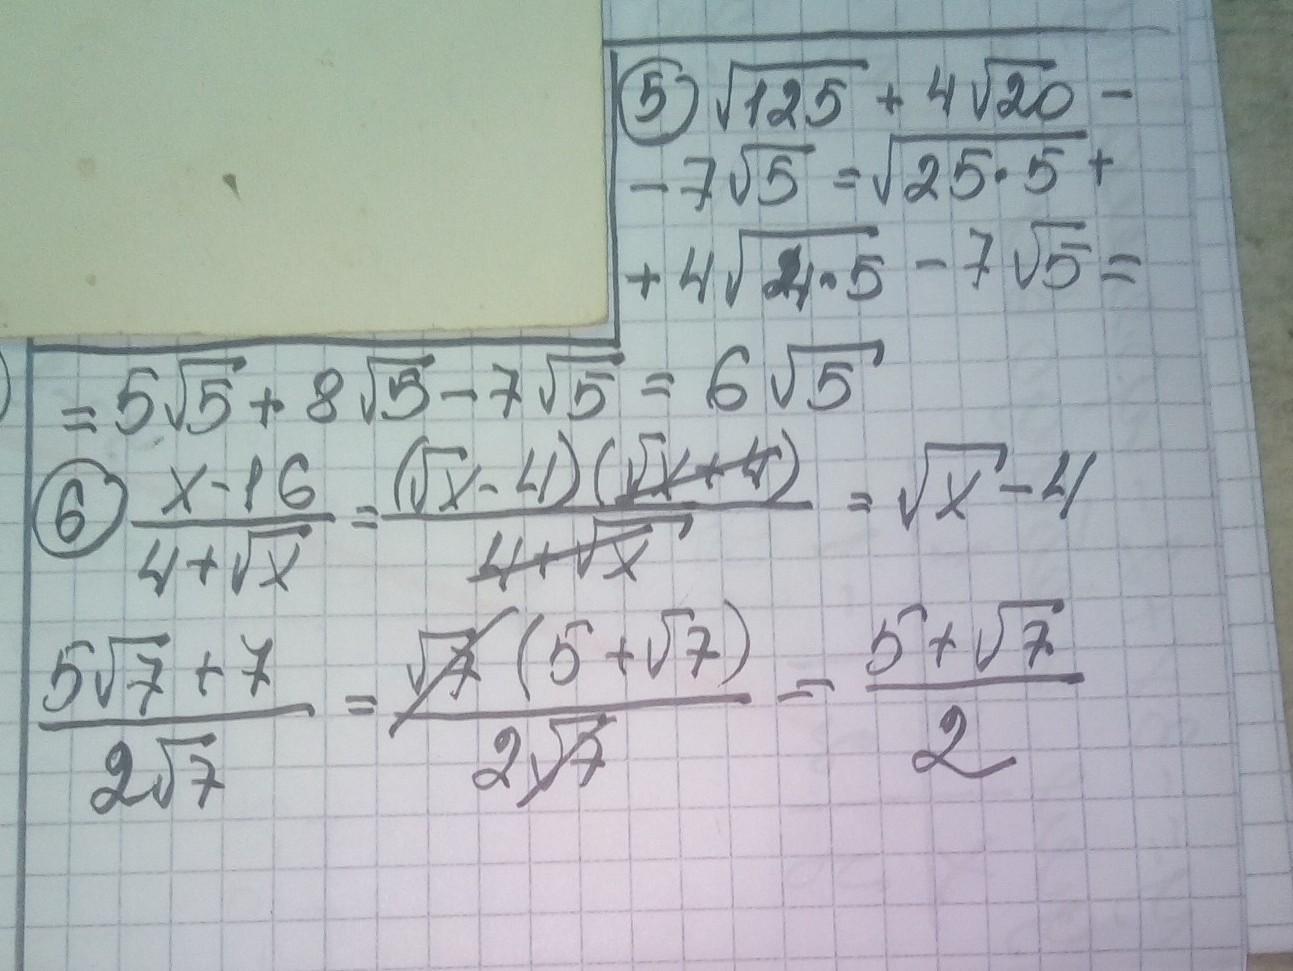 ⑤ √125 + 4√20 −
− 7√5 = √25·5 +
+ 4√4·5 − 7√5 =
= 5√5 + 8√5 − 7√5 = 6√5
⑥ (x−16)/(4+√x) = (√x−4)(√x+4)/(4+√x) = √x − 4
(5√7 + 7)/(2√7) = √7(5+√7)/(2√7) = (5+√7)/2